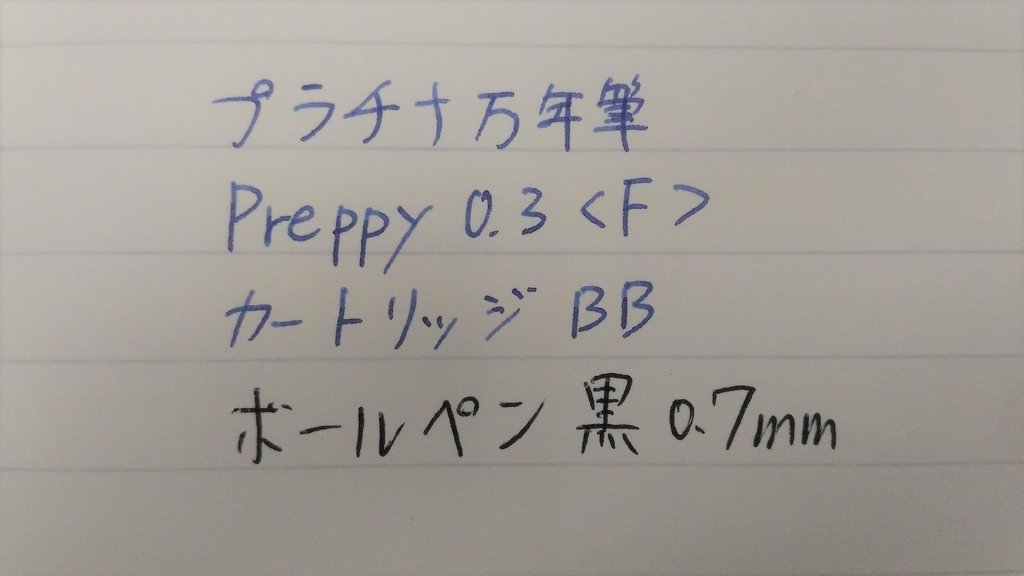 プラチナ万年筆
Preppy 0.3 <F>
カートリッジ BB
ボールペン 黒 0.7mm